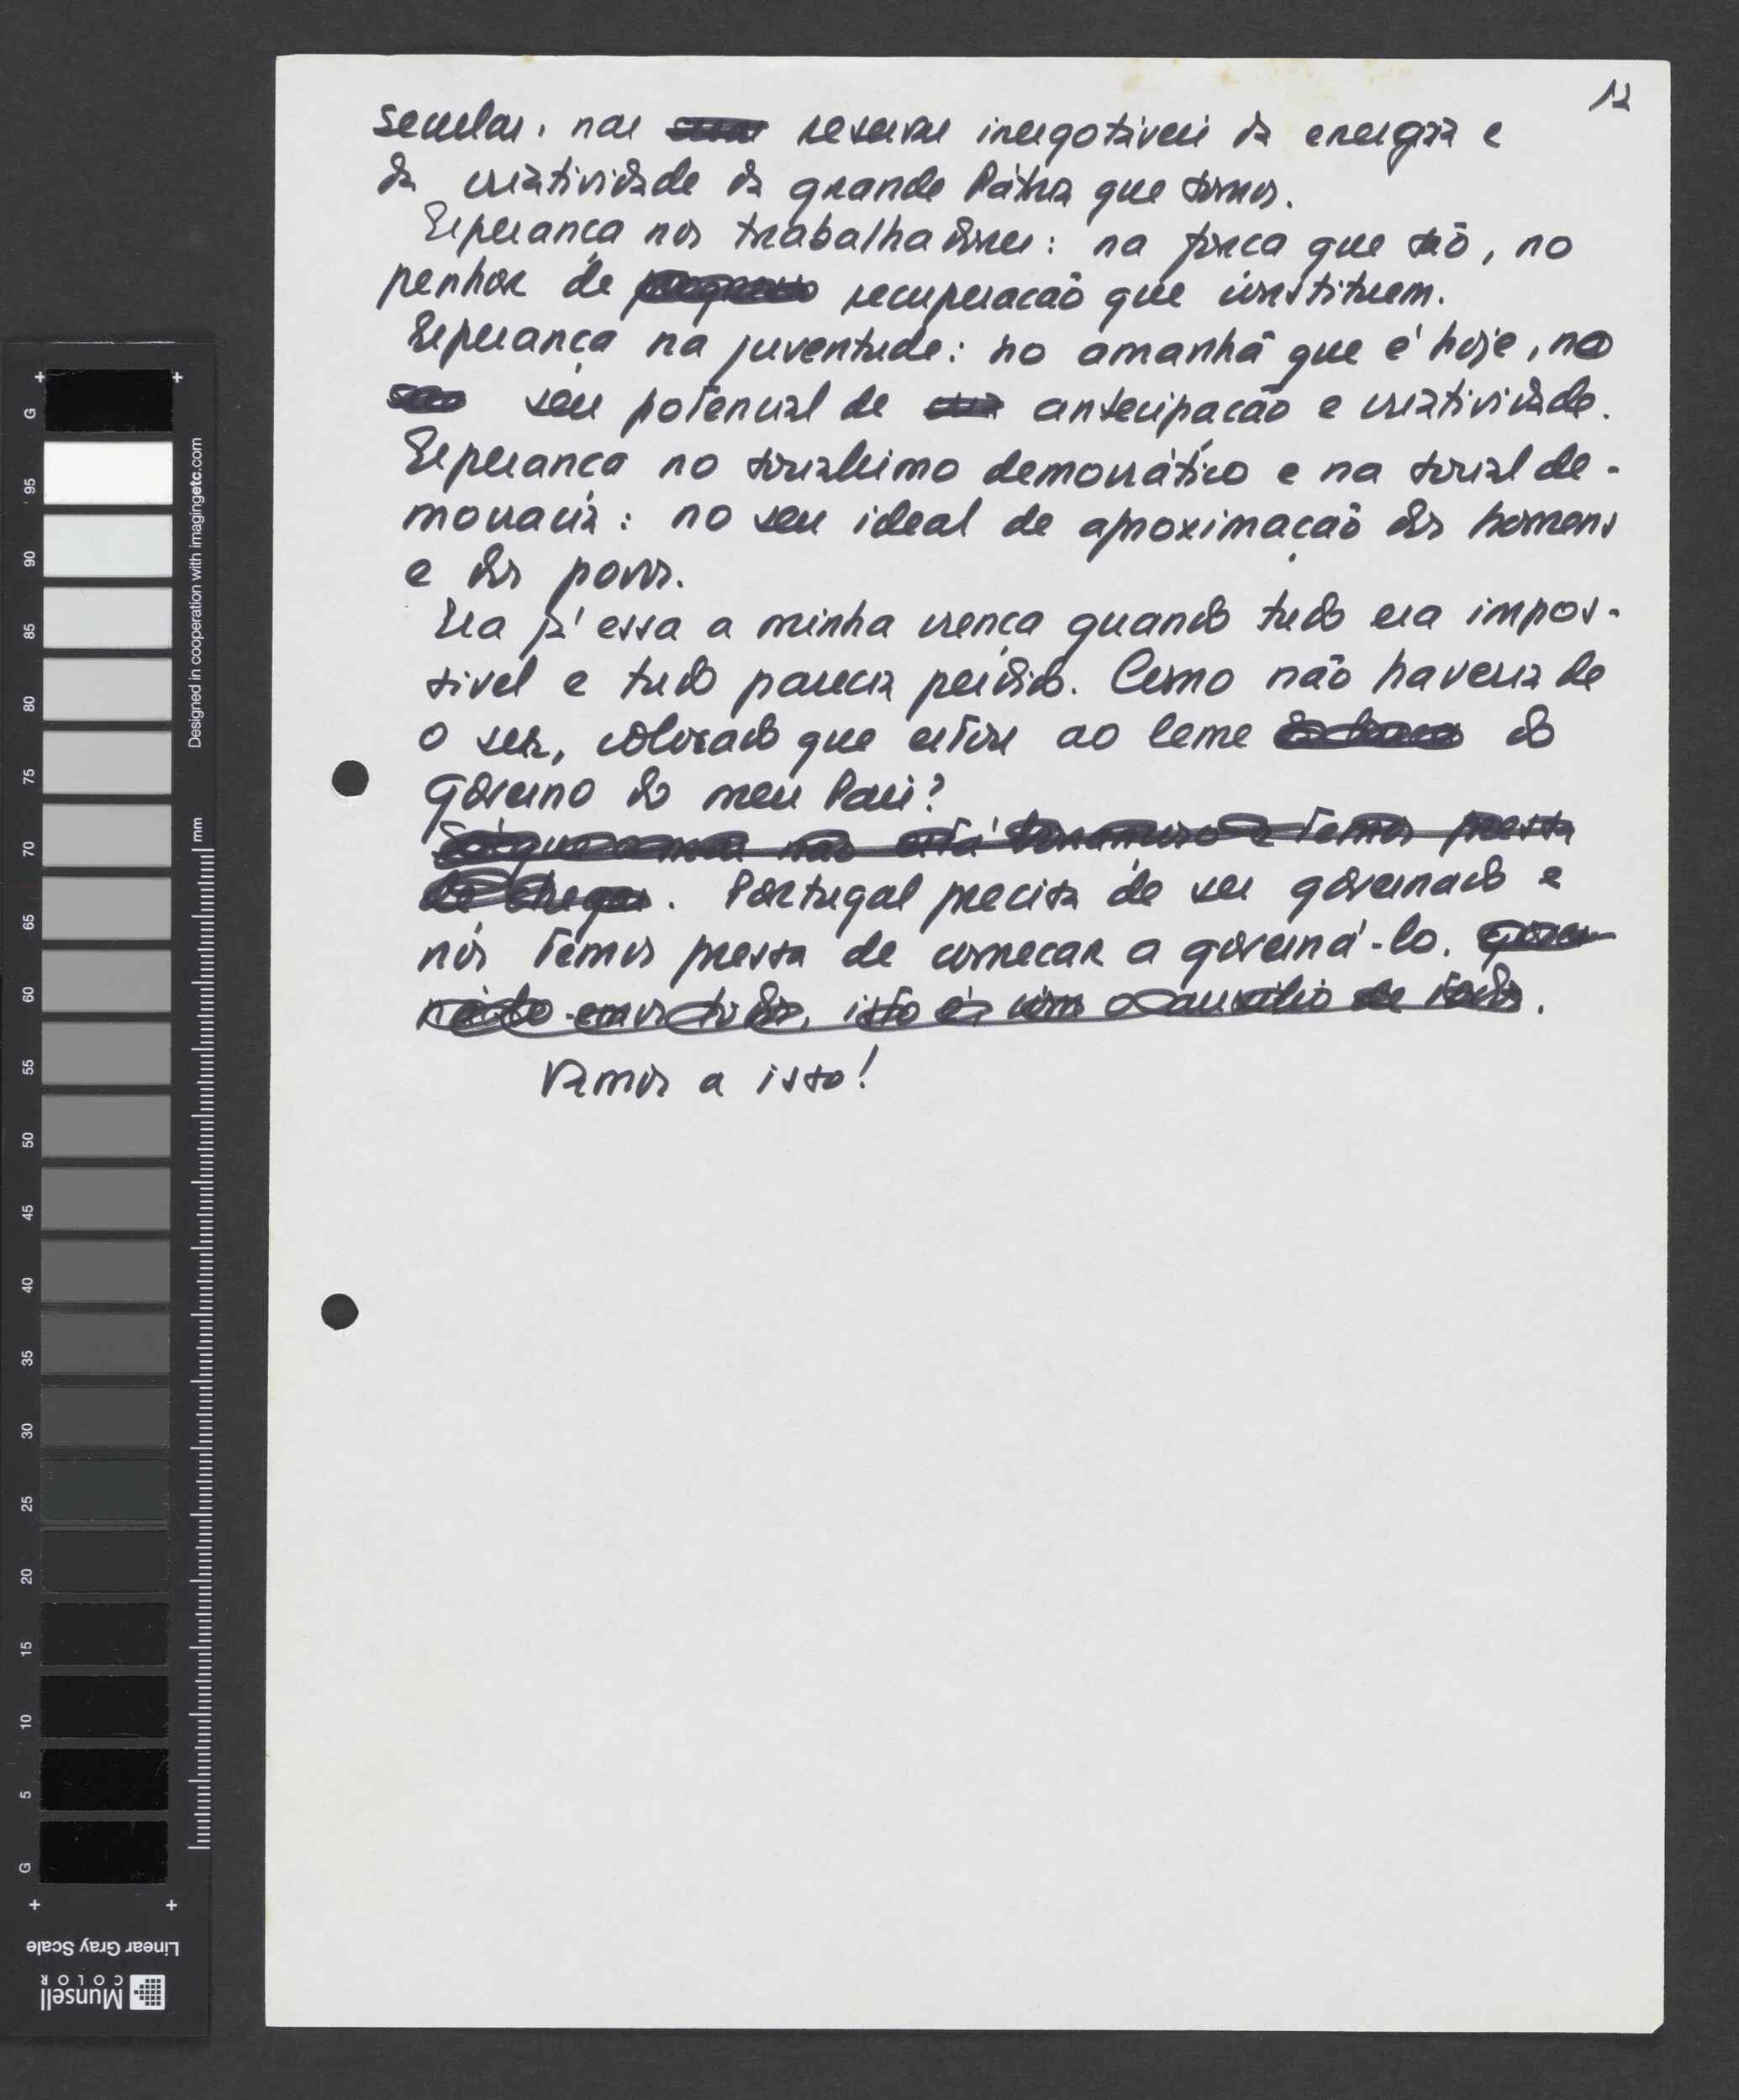 12
seculares, nas suas reservas inesgotáveis da energia e
da criatividade da grande Pátria que somos.
Esperança nos trabalhadores: na força que são, no
penhor de progresso recuperação que constituem.
Esperança na juventude: no amanhã que é hoje, no
seu potencial de antecipação e criatividade.
Esperança no socialismo democrático e na social de-
mocracia: no seu ideal de aproximação dos homens
e dos povos.
Era já essa a minha crença quando tudo era impos-
sível e tudo parecia perdido. Como não haveria de
o ser, colocado que estou ao leme do
governo do meu País?
não está temos pressa
de chegar. Portugal precisa de ser governado e
nós temos pressa de começar a governá-lo.
isto é, com o auxílio de todos.
Vamos a isto!
Designed in cooperation with imagingetc.com
mm
G 95 90 85 80 75 70 65 60 55 50 45 40 35 30 25 20 15 10 5 G
Linear Gray Scale
Munsell
COLOR